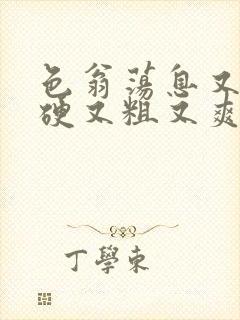 色翁荡息又
硬又粗又爽
丁學東